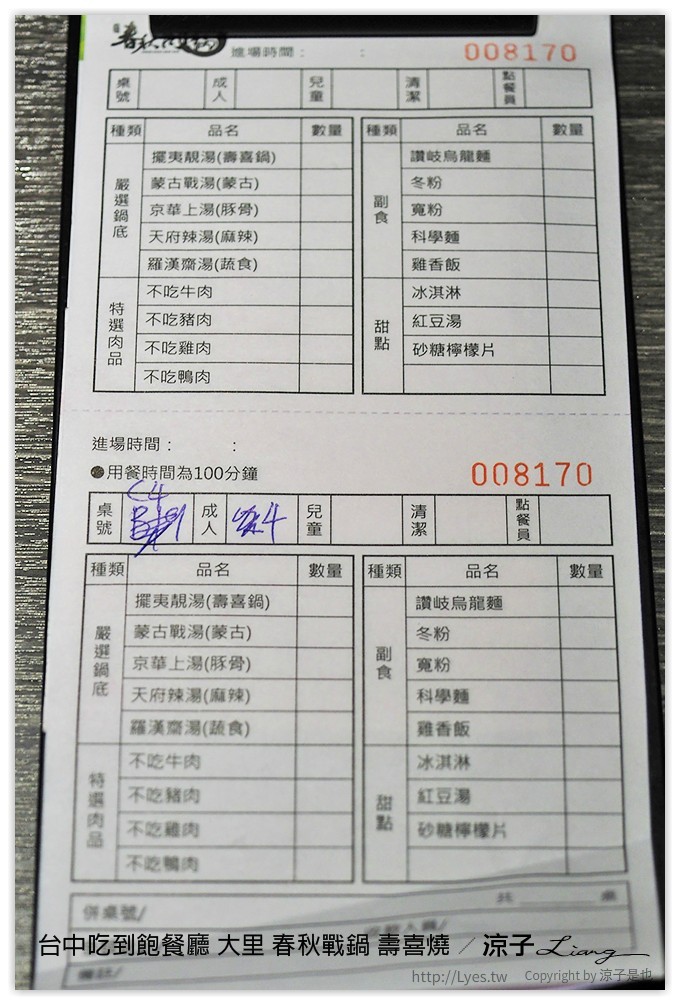 進場時間： ： 008170
桌號 成人 兒童 清潔 點餐員
種類 品名 數量 種類 品名 數量
嚴選鍋底 擺夷靚湯(壽喜鍋) 副食 讚岐烏龍麵
蒙古戰湯(蒙古) 冬粉
京華上湯(豚骨) 寬粉
天府辣湯(麻辣) 科學麵
羅漢齋湯(蔬食) 雞香飯
特選肉品 不吃牛肉 甜點 冰淇淋
不吃豬肉 紅豆湯
不吃雞肉 砂糖檸檬片
不吃鴨肉
進場時間： ：
●用餐時間為100分鐘 008170
C4
桌號 成人 4 兒童 清潔 點餐員
種類 品名 數量 種類 品名 數量
嚴選鍋底 擺夷靚湯(壽喜鍋) 副食 讚岐烏龍麵
蒙古戰湯(蒙古) 冬粉
京華上湯(豚骨) 寬粉
天府辣湯(麻辣) 科學麵
羅漢齋湯(蔬食) 雞香飯
特選肉品 不吃牛肉 甜點 冰淇淋
不吃豬肉 紅豆湯
不吃雞肉 砂糖檸檬片
不吃鴨肉
併桌號/ 共 桌
台中吃到飽餐廳 大里 春秋戰鍋 壽喜燒 / 涼子 Liang
http://Lyes.tw Copyright by 涼子是也